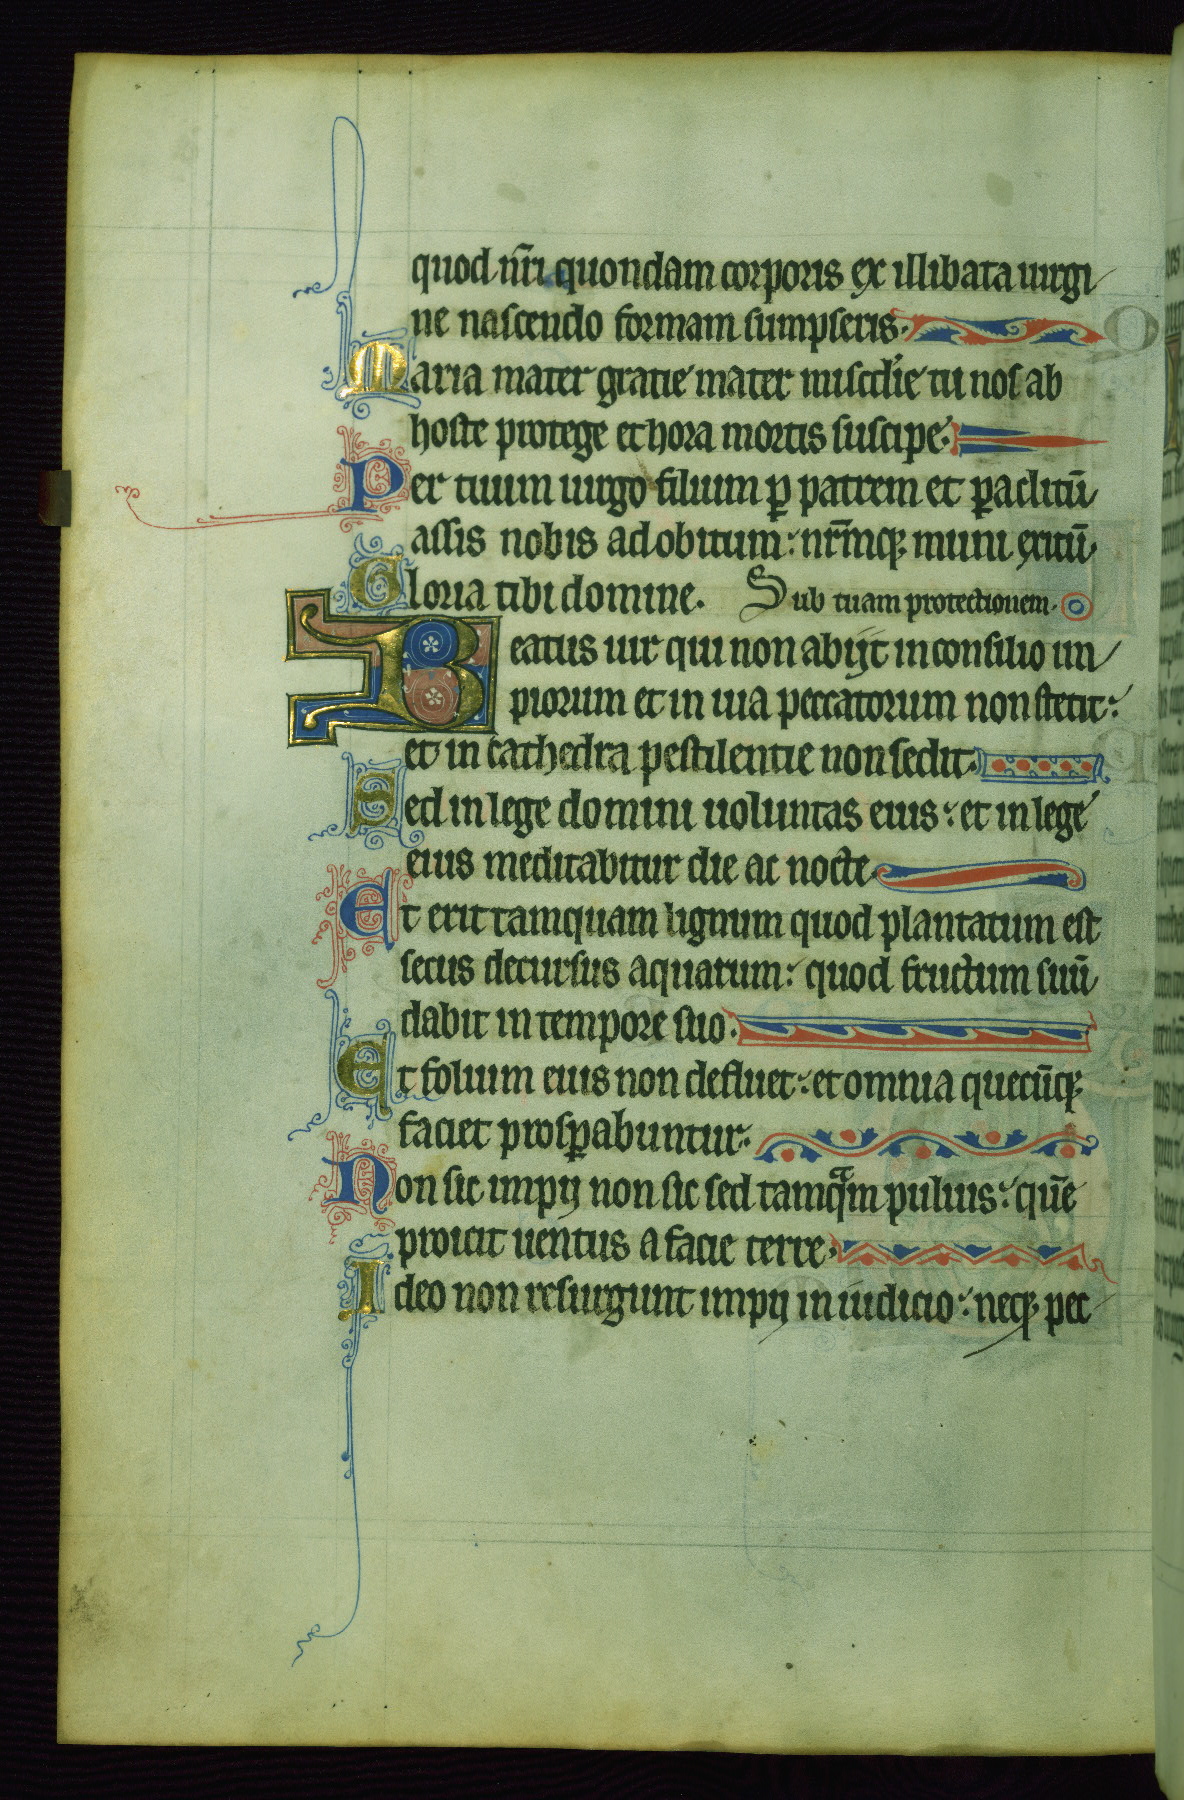 quod nr̃i quondam corporis ex illibata uirgi
ne nascendo formam sumpseris.
Maria mater gratie mater misc̃die tu nos ab
hoste protege et hora mortis suscipe.
Per tuum uirgo filium ꝑ patrem et ꝑaclitū
assis nobis ad obitum: nr̃mqꝫ muni exitū
Gloria tibi domine. Sub tuam protectionem.
Beatus uir qui non abijt in consilio im
piorum et in uia peccatorum non stetit:
et in cathedra pestilentie non sedit.
Sed in lege domini uoluntas eius: et in lege
eius meditabitur die ac nocte
Et erit tamquam lignum quod plantatum est
secus decursus aquarum: quod fructum suū
dabit in tempore suo.
Et folium eius non defluet: et omnia quecūqꝫ
faciet prosꝑabuntur.
Non sic impij non sic sed tamqᵃm puluis: quē
proicit uentus a facie terre.
Ideo non resurgunt impij in iudicio: neqꝫ pec